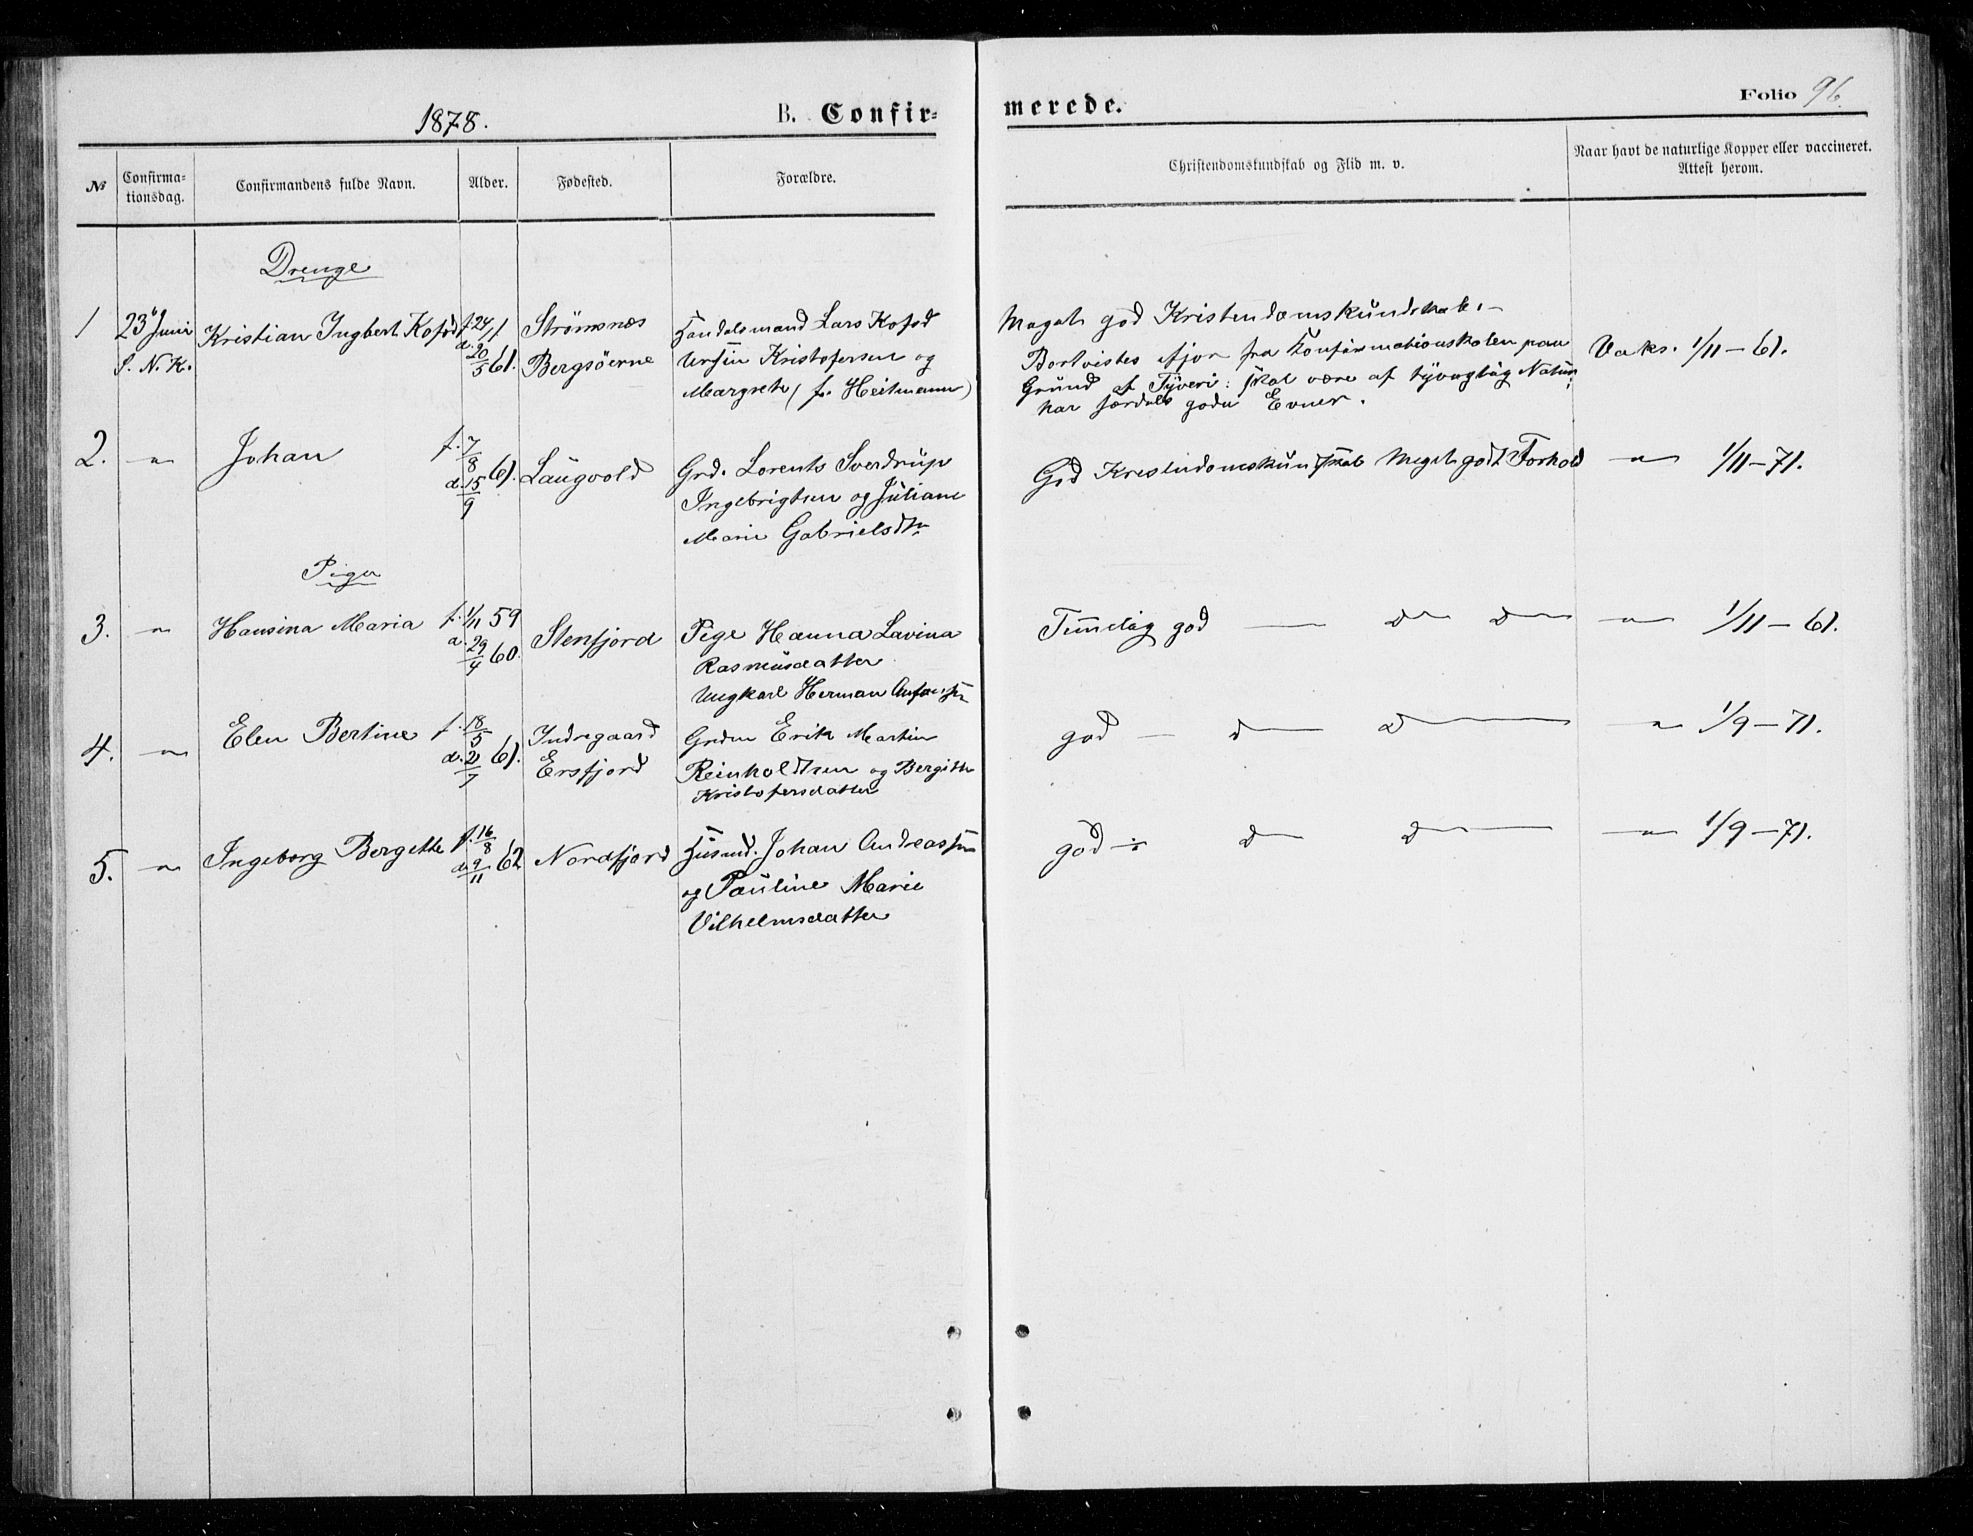 1878.
B. Confir-
merede.
Folio 96.
№
Confirma-
tionsdag.
Confirmandens fulde Navn.
Alder.
Fødested.
Forældre.
Christendomskundskab og Flid m. v.
Naar havt de naturlige Kopper eller vaccineret.
Attest herom.
Drenge
1 23 Juni Kristian Ingbert Kofod f. 24/1 Strömsnæs Handelsmand Lars Kofod Meget god Kristendomskundskab. –
S. N. K. d. 20/5 61. Bergsöerne Ursin Kristofersen og Bortvistes ifjor fra Konfirmationsskolen paa Vaks. 1/11 – 61.
Margrete (f. Heitmann) Grund af Tyveri: skal være af tyvagtig Natur;
har særdeles gode Evner.
2. – " – Johan f. 7/8 61. Laugvold Grd. Lorents Sverdrup God Kristendomskundskab Meget godt Forhold – " – 1/11 – 71.
d. 15/9 Ingebrigtsen og Juliane
Marie Gabrielsdtr
Piger
3. – " – Hansina Maria f. 1/11 59 Stenfjord Pige Hanna Lavina Temmelig god — D D – " – 1/11 – 61.
d. 29/4 60. Rasmusdatter
Ungkarl Herman
4. – " – Elen Bertine f. 18/5 Indregaard Grdm Erik Martin god — D D — " 1/9 – 71.
d. 21/7 61. Ersfjord Reinholdtsen og Bergitte
Kristofersdatter
5. – " – Ingeborg Bergette f. 16/8 62 Nordfjord Husmd. Johan Andreassen god – D D — – " – 1/9 – 71.
d. 9/11 og Pauline Marie
Vilhelmsdatter